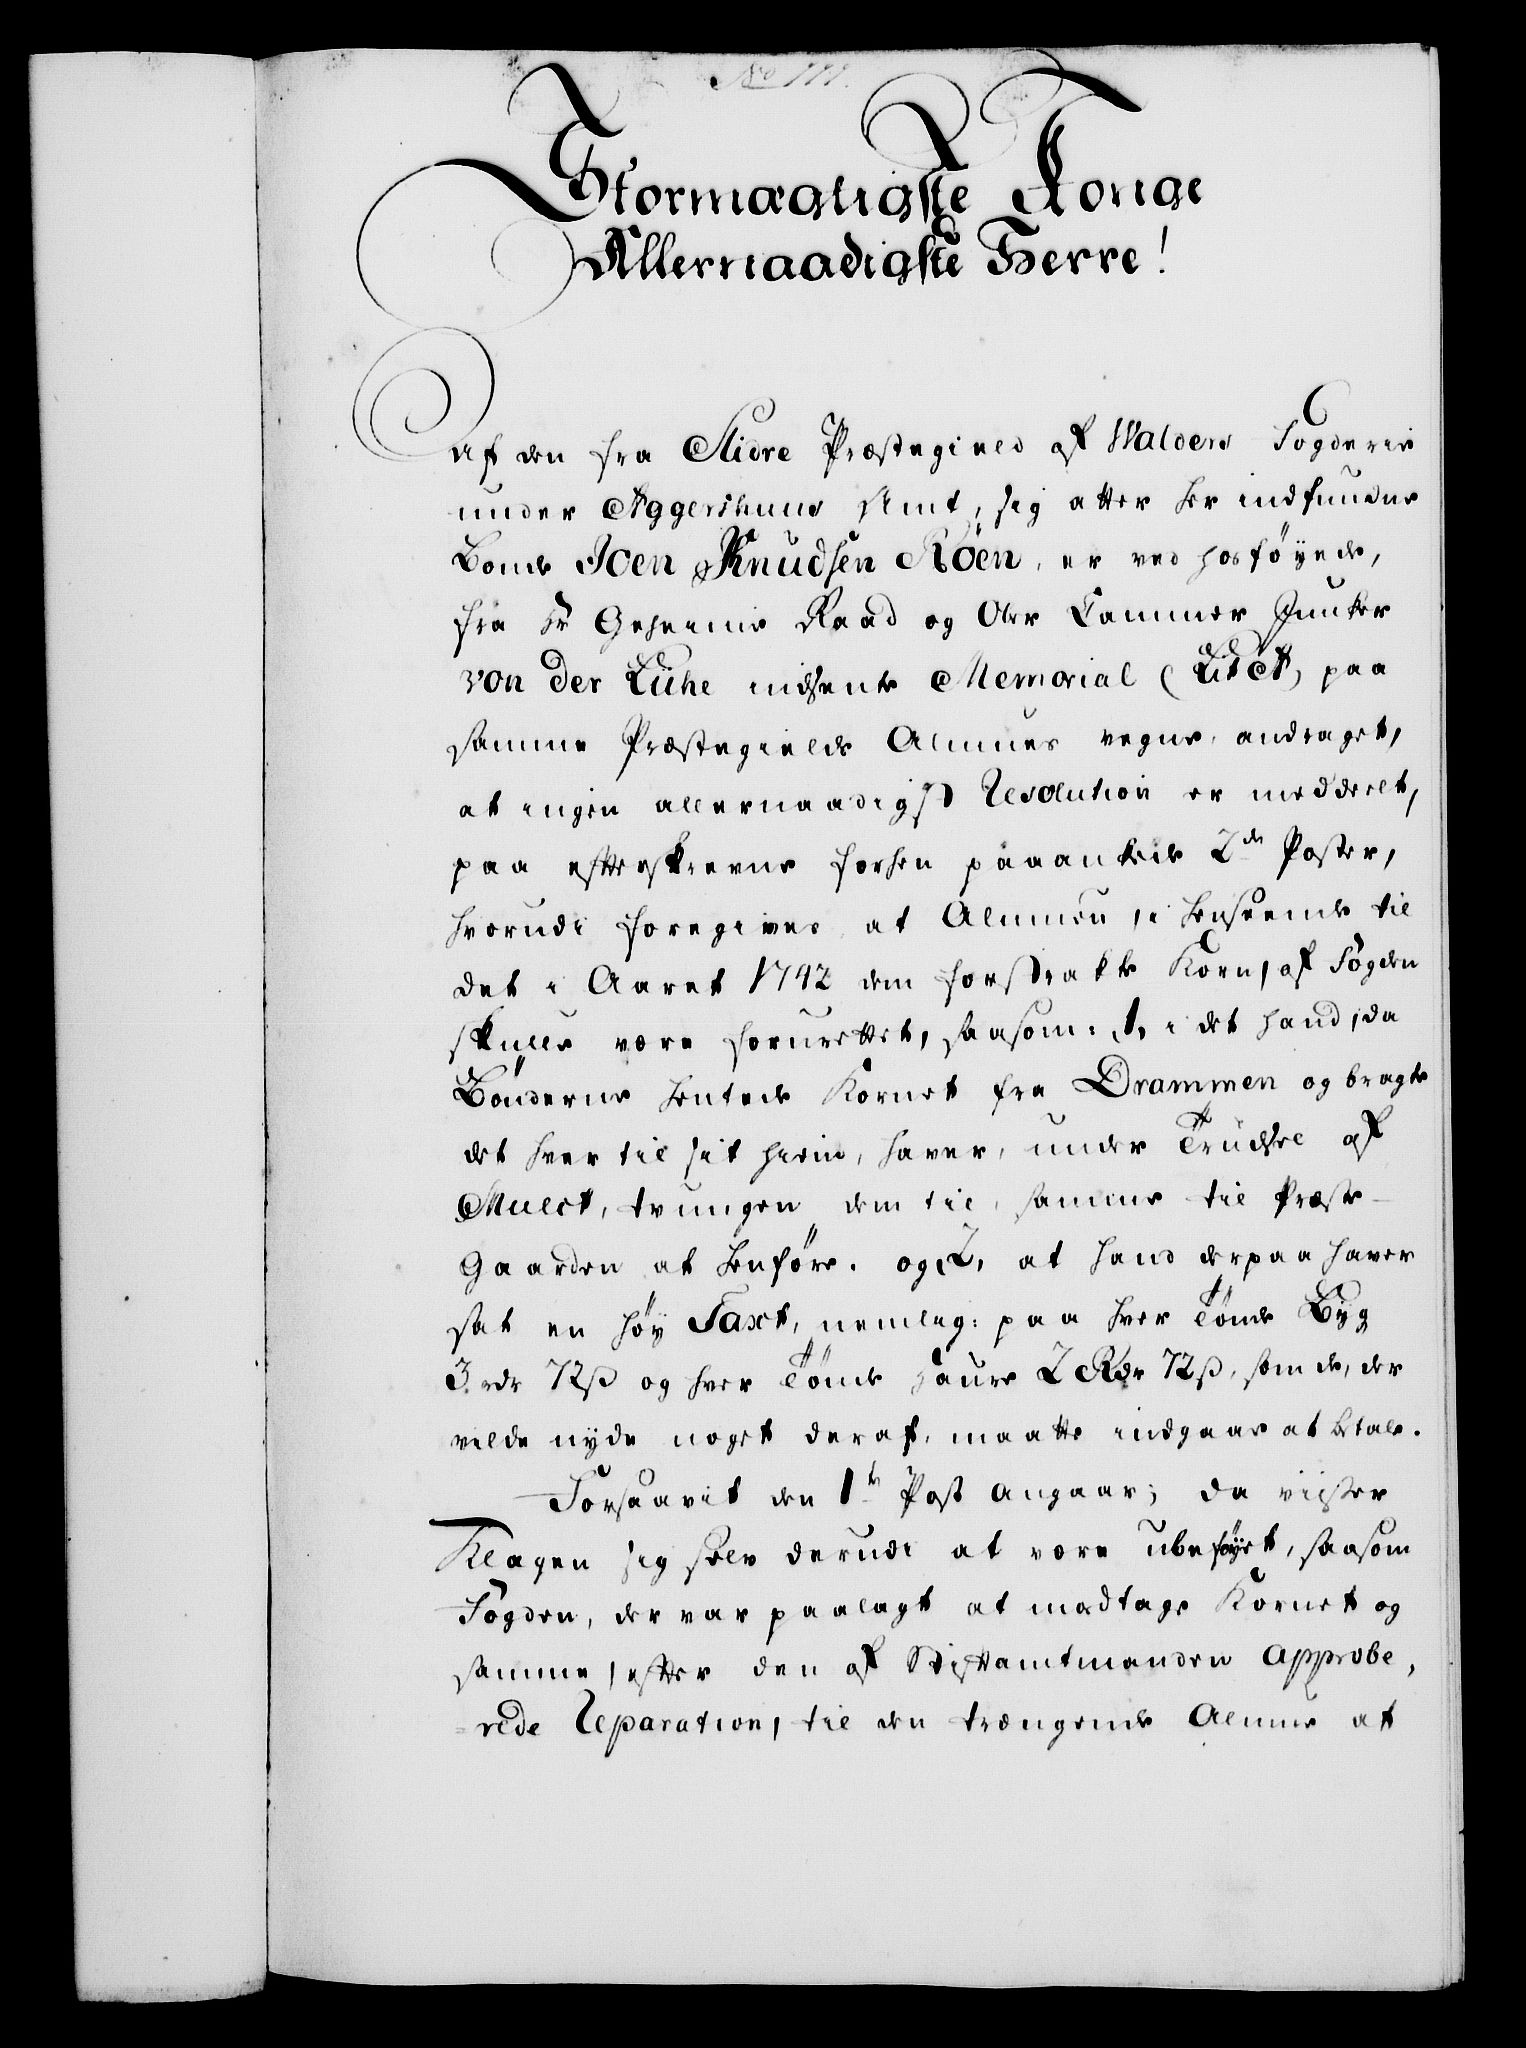 No 111.
Stormægtigste Konge
Allernaadigste Herre!
Af den fra Slidre Præstegield af Walders Fogderie
under Aggershuus Amt, sig atter her indfundne
Bonde Joen Knudsen Röen, er ved hosföyede,
fra Hr Geheime Raad og Ober Cammer Junker
von der Lühe indsendte Memorial (Lit A) paa
samme Præstegields Almues vegne, andraget,
at ingen allernaadigst Resolution er meddeelt,
paa efterskrevne forhen paaankede 2de Poster,
hvorudi foregives at Almuen, i henseende til
det i Aaret 1742 dem forstrakte Korn, af Fogden
skulle være forurettet, saasom: 1, i det hand, da
Bönderne hentede Kornet fra Drammen og bragte
det hver til sit hiem, haver, under Trüdsel af
Mulct, tvungen dem til, samme til Præste-
Gaarden at henföre. og 2, at hand derpaa haver
sat en höy Taxt, nemlig: paa hver Tönde Byg
3 rdr 72 ß og hver Tönde Haure 2 Rdr 72 ß, som de, der
vilde nyde noget deraf, maatte indgaae at betale.
Forsaavit den 1te Post angaar; da viiser
Klagen sig selv derudi at være ubeföyet, saasom
Fogden, der var paalagt at modtage Kornet og
samme, efter den af Stiftamtmanden approbe,
=rede Reparation, til den trængende Almue at